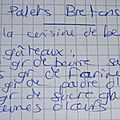 Palets Bretons
la cuisine de be
gâteaux :
gr de beurre
gr de farine
gr de poudre d
gr de sucre
jaunes d'œufs